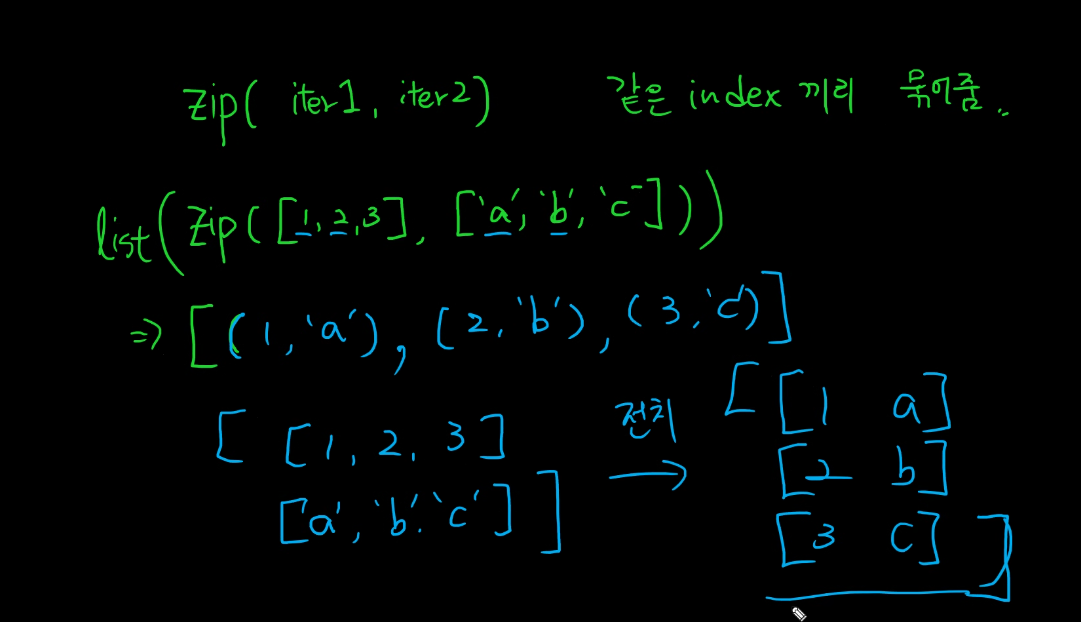 zip( iter1, iter2) 같은 index 끼리 묶어줌..
list(zip([1,2,3], ['a', 'b', 'c']))
⇒ [(1, 'a'), (2, 'b'), (3, 'c')]
[ [1, 2, 3]
['a', 'b', 'c'] ]
전치
[ [1 a]
[2 b]
[3 c] ]